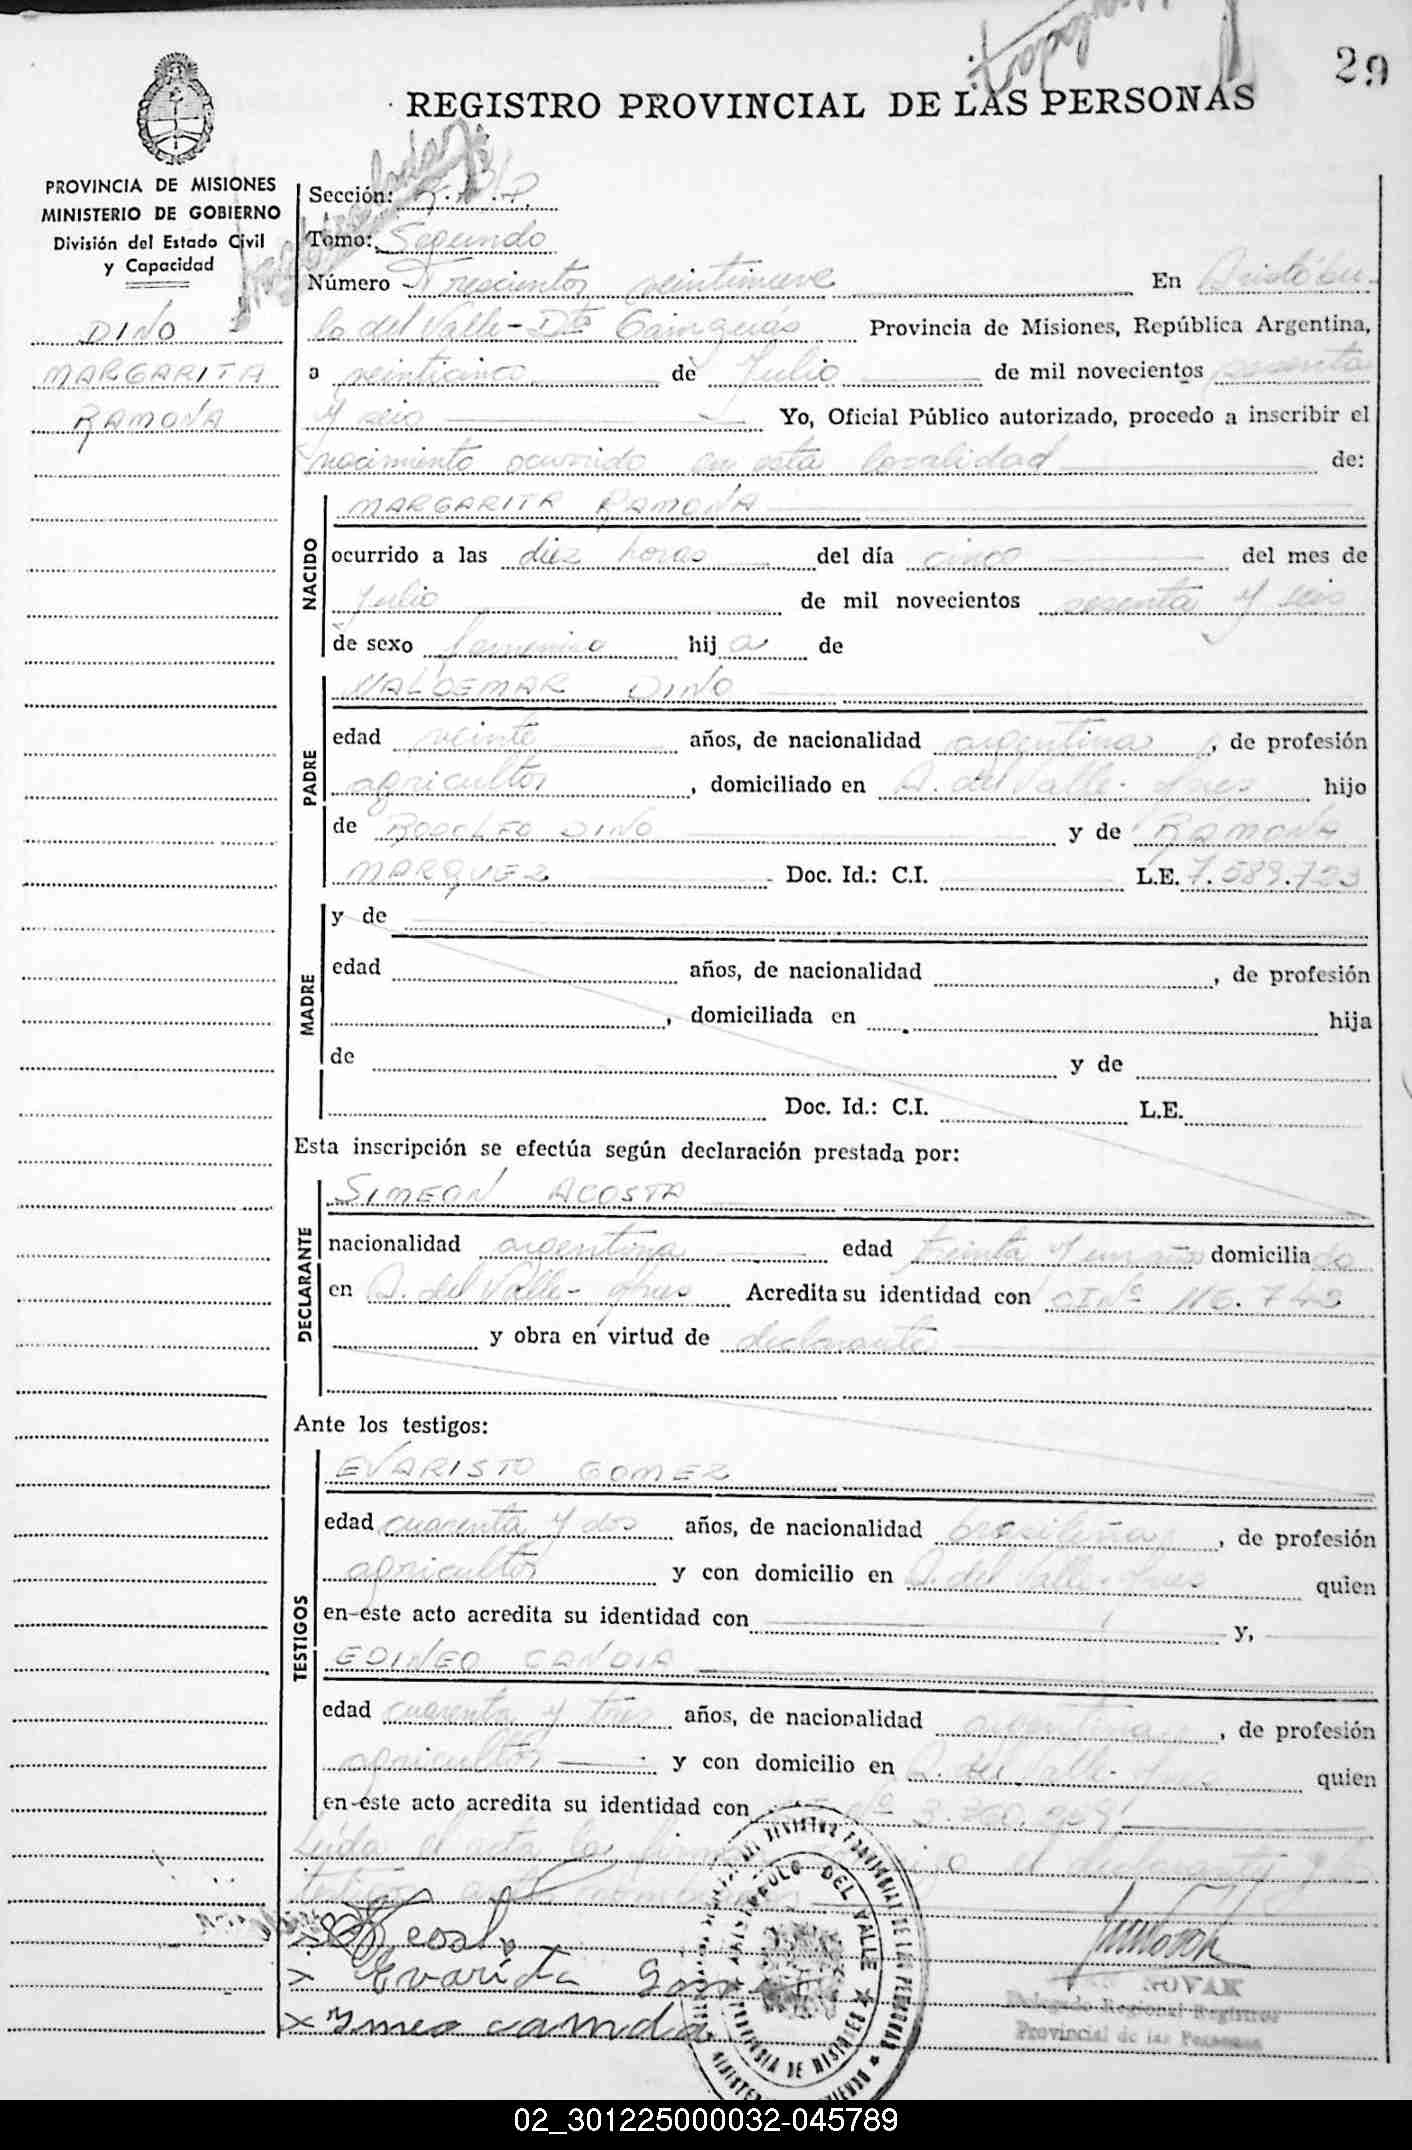 29
REGISTRO PROVINCIAL DE LAS PERSONAS
PROVINCIA DE MISIONES
MINISTERIO DE GOBIERNO
División del Estado Civil
y Capacidad
DINO
MARGARITA
RAMONA
Sección:
Tomo: Segundo
Número Trescientos veintinueve En Aristóbu-
lo del Valle - Dto Cainguás Provincia de Misiones, República Argentina,
a veinticinco de Julio de mil novecientos sesenta
y seis Yo, Oficial Público autorizado, procedo a inscribir el
nacimiento ocurrido en esta localidad de:
NACIDO
MARGARITA RAMONA
ocurrido a las diez horas del día cinco del mes de
Julio de mil novecientos sesenta y seis
de sexo femenino hij a de
PADRE
WALDEMAR DINO
edad veinte años, de nacionalidad argentina, de profesión
agricultor, domiciliado en A. del Valle - Mnes hijo
de RODOLFO DINO y de RAMONA
MARQUEZ Doc. Id.: C.I. L.E. 7.589.723
MADRE
y de
edad años, de nacionalidad , de profesión
, domiciliada en hija
de y de
Doc. Id.: C.I. L.E.
Esta inscripción se efectúa según declaración prestada por:
DECLARANTE
SIMEON ACOSTA
nacionalidad argentina edad treinta y un años domicilia do
en A. del Valle - Mnes Acredita su identidad con CI Nº 116.743
y obra en virtud de declarante
Ante los testigos:
TESTIGOS
EVARISTO GOMEZ
edad cuarenta y dos años, de nacionalidad brasileña, de profesión
agricultor y con domicilio en A. del Valle - Mnes quien
en este acto acredita su identidad con y,
EDINEO CANDIA
edad cuarenta y tres años, de nacionalidad argentina, de profesión
agricultor y con domicilio en A. del Valle - Mnes quien
en este acto acredita su identidad con Nº 3.360.959
Leída el acta la firma el declarante y los
testigos
Evaristo Gomez
candia
ARISTOBULO DEL VALLE
PROVINCIA DE MISIONES
NOVAK
Delegado Regional Registros
Provincial de las Personas
02_301225000032-045789